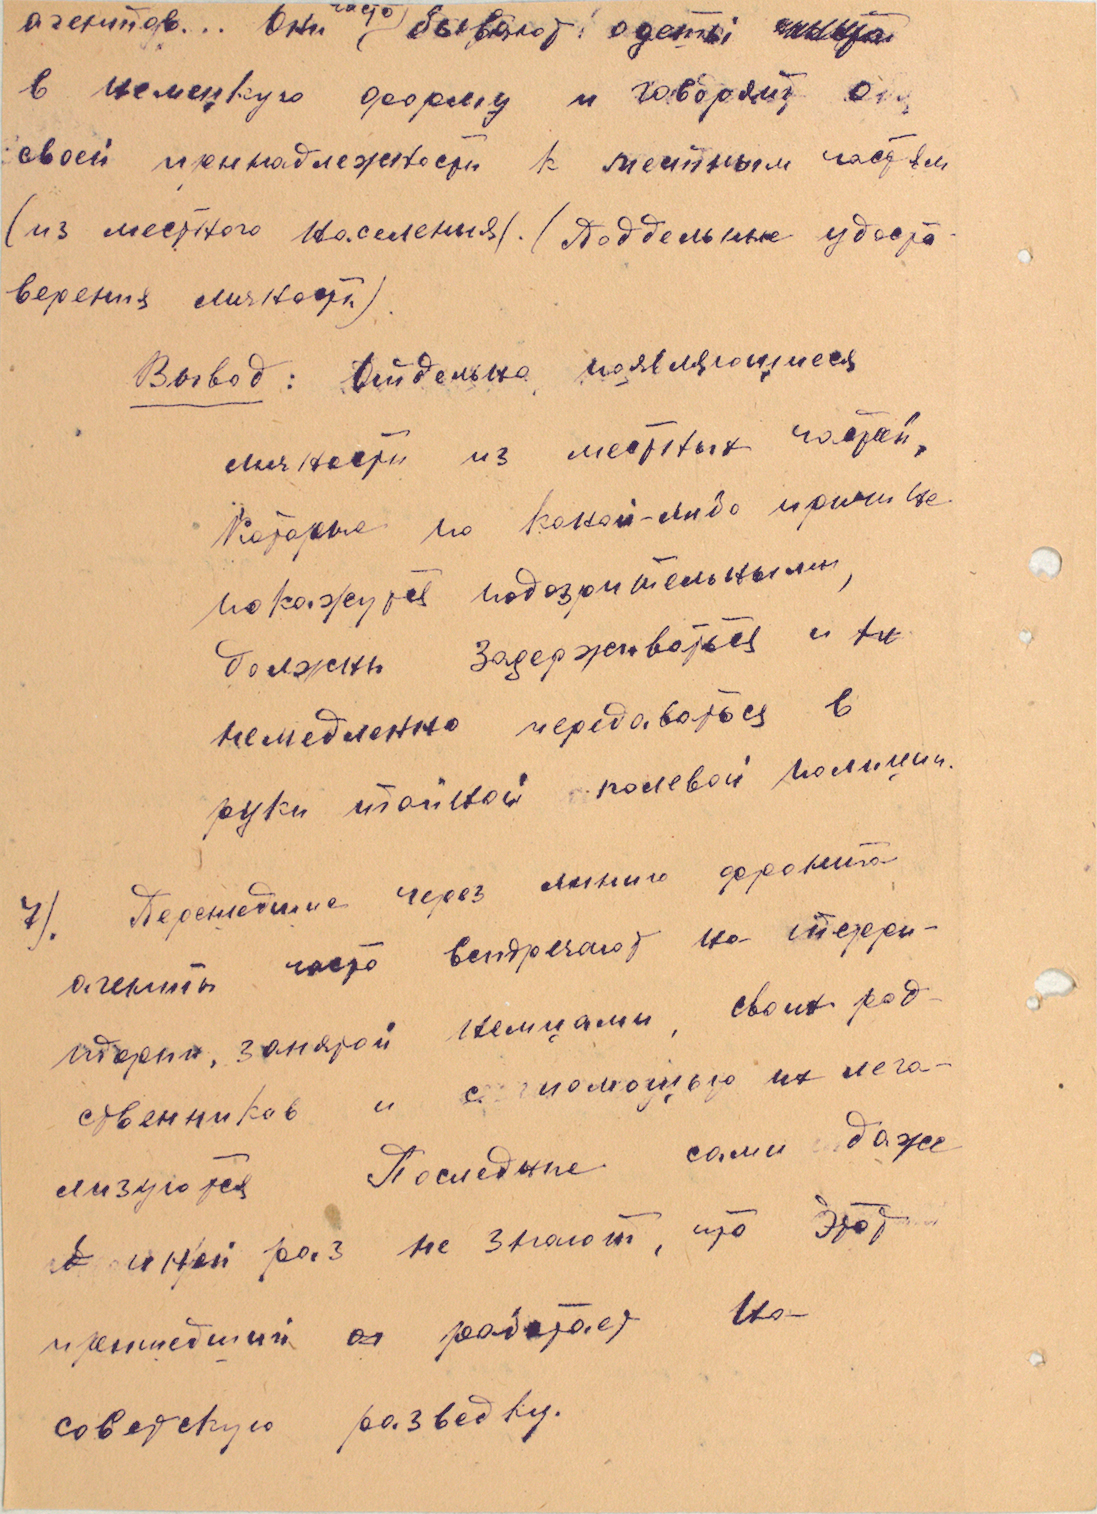 агентов... Они часто бывают одеты
в немецкую форму и говорят о
своей принадлежности к местным частям
(из местного населения). (Поддельные удосто-
верения личности).
Вывод: Отдельно появляющиеся
личности из местных частей,
которые по какой-либо причине
покажутся подозрительными,
должны задерживаться и
немедленно передаваться в
руки тайной полевой полиции.
7). Перешедшие через линию фронта
агенты часто встречают на терри-
тории, занятой немцами, своих род-
ственников и с помощью их лега-
лизуются Последние сами даже
иной раз не знают, что этот
пришедший работает на
советскую разведку.